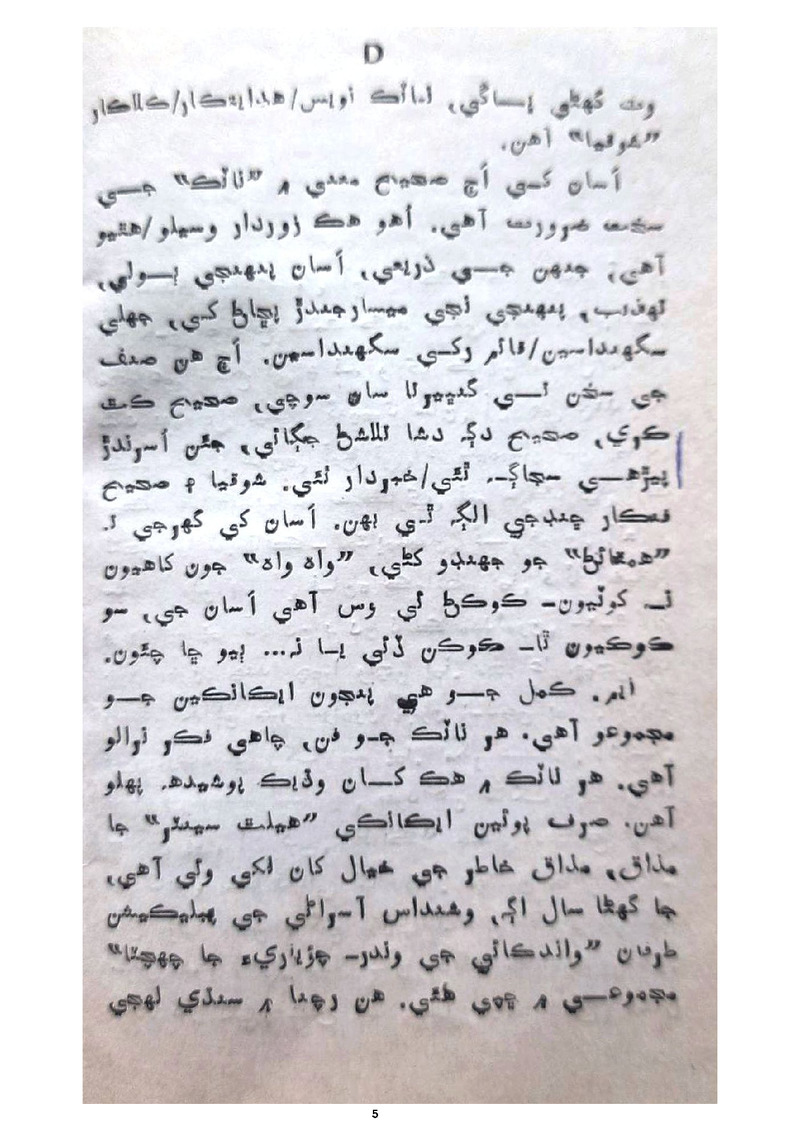 D
وٽ گهڻي ڀاڱي، ناٽڪ نويس/هدايتڪار/ڪلاڪار
”شوقيا“ آهن.
اَسان کي اَڄ صحيح معنيٰ ۾ ”ناٽڪ“ جي
سخت ضرورت آهي. اُهو هڪ زوردار وسيلو/هٿيو
آهي، جنهن جي ذريعي، اَسان پنهنجي ٻولي،
تهذيب، پنهنجي نجي ميسارجندڙ سڃاڻ کي، جهلي
سگهنداسين/قائم رکي سگهنداسين. اَڄ هن صنف
جي سخن تي گنڀيرتا سان سوچي، صحيح ڪٿ
ڪري، صحيح دڳ دشا تلاش ڪجي، جيئن اُسرندڙ
پيڙهي سڄاڳ ٿئي/خبردار ٿئي. شوقيا ۽ صحيح
فنڪار ڇنڊجي الڳ ٿي پون. اَسان کي گهرجي ته
جو جهنڊو کڻي، ”واه واه“ جون ڪاهيون
نه ڪوٺيون- ڪوڪڻ ئي وَس آهي اَسان جي، سو
ڪوڪيون ٿا- ڪوڪن ڏئي يا نه... ٻيو ڇا چئون.
ايم. ڪمل جو هي پنجون ايڪانڪين جو
مجموعو آهي. هر ناٽڪ جو فن، چاهي فڪر نرالو
آهي. هر ناٽڪ ۾ هڪ کان وڌيڪ پوشيده پهلو
آهن. صرف پوئين ايڪانڪي ”هيلٿ سينٽر“ جا
مذاق، مذاق خاطر جي خيال کان لکي وئي آهي،
جا گهڻا سال اڳ، وشنداس آسراڻي جي پبليڪيشن
طرفان ”واندڪائي جي وندر- چڙياريءَ جا ڇهڇٽا“
مجموعي ۾ ڇپي هئي. هن رچنا ۾ سنڌي لهجي
5